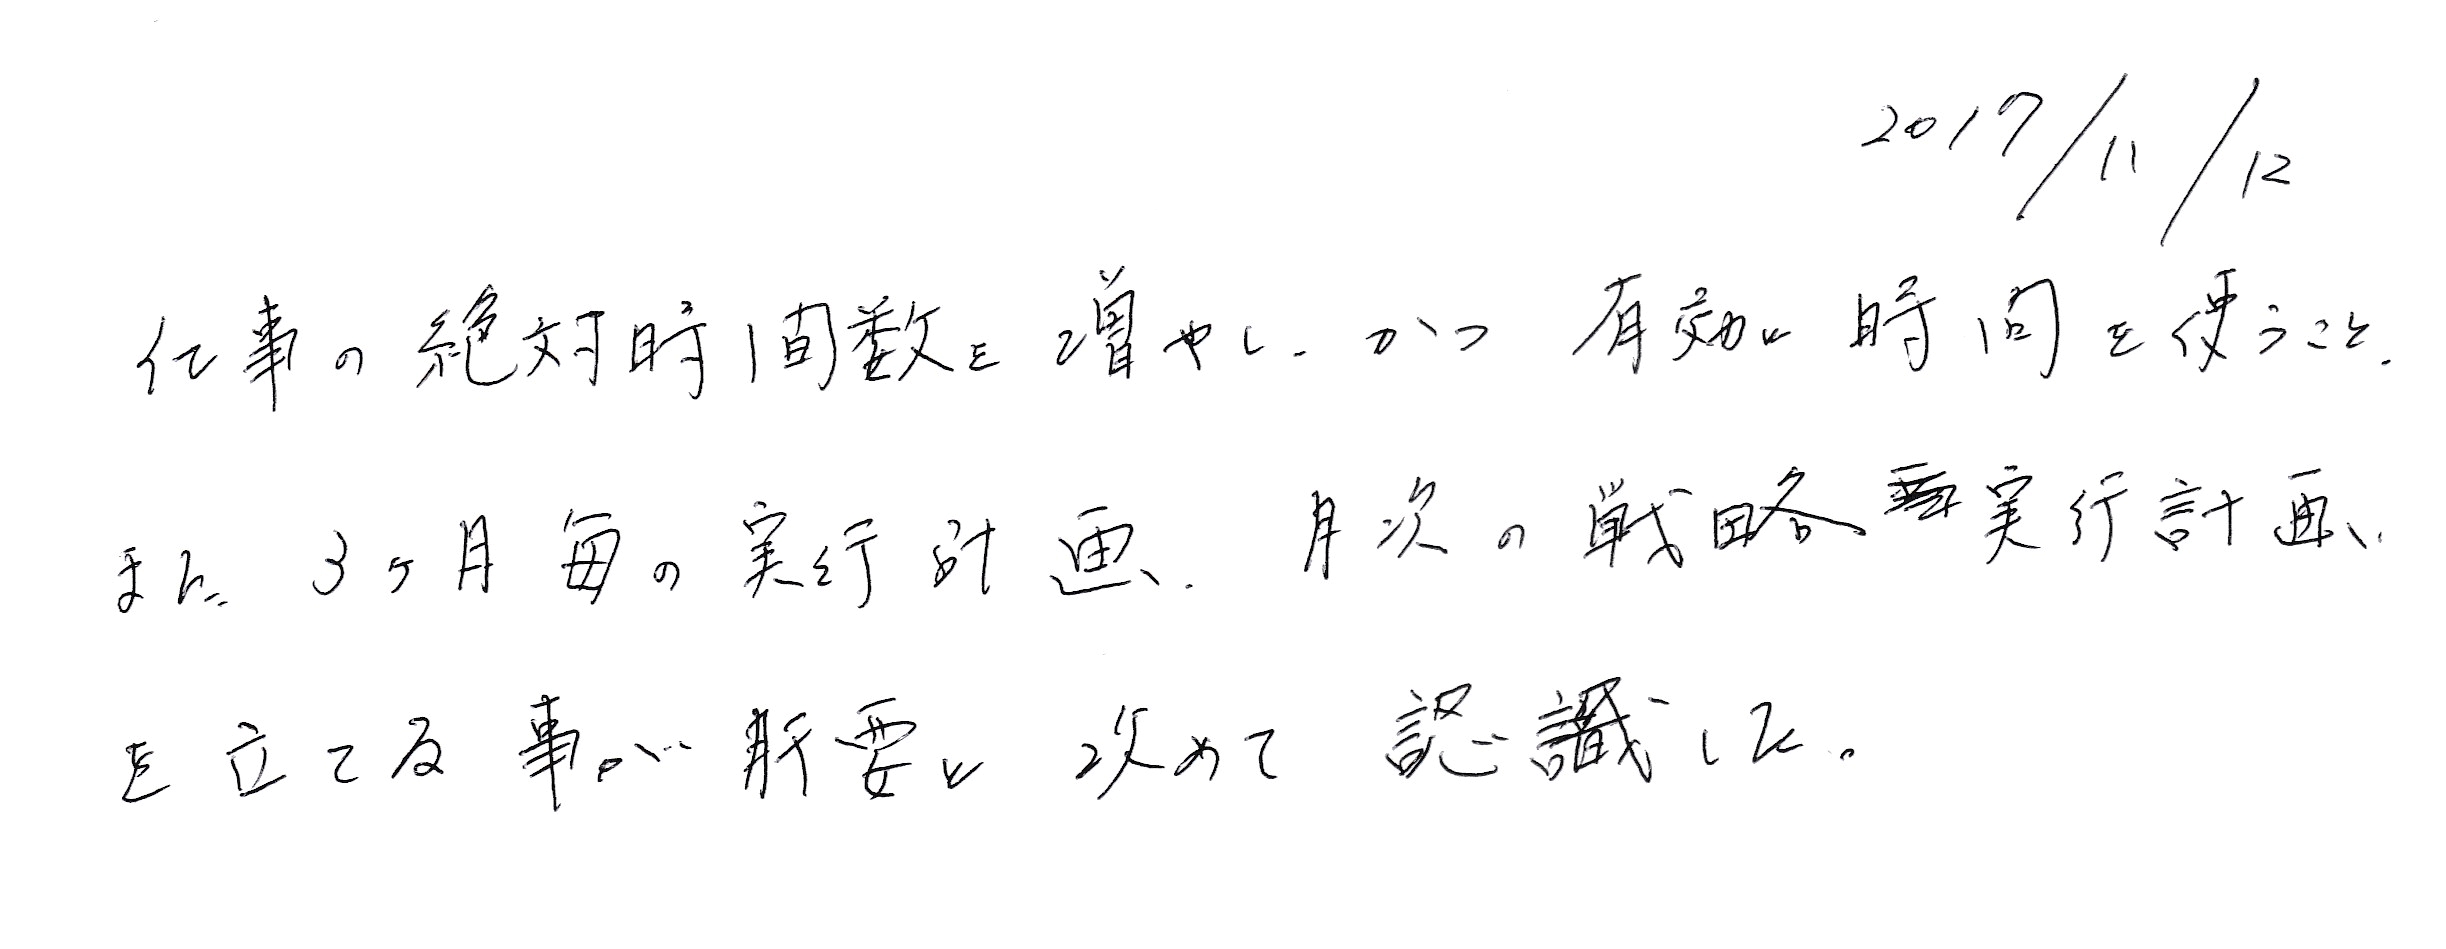 2017/11/12
仕事の絶対時間数を増やし、かつ有効に時間を使うこと、
また、3ヶ月毎の実行計画、月次の戦略実行計画、
を立てる事が肝要と改めて認識した。